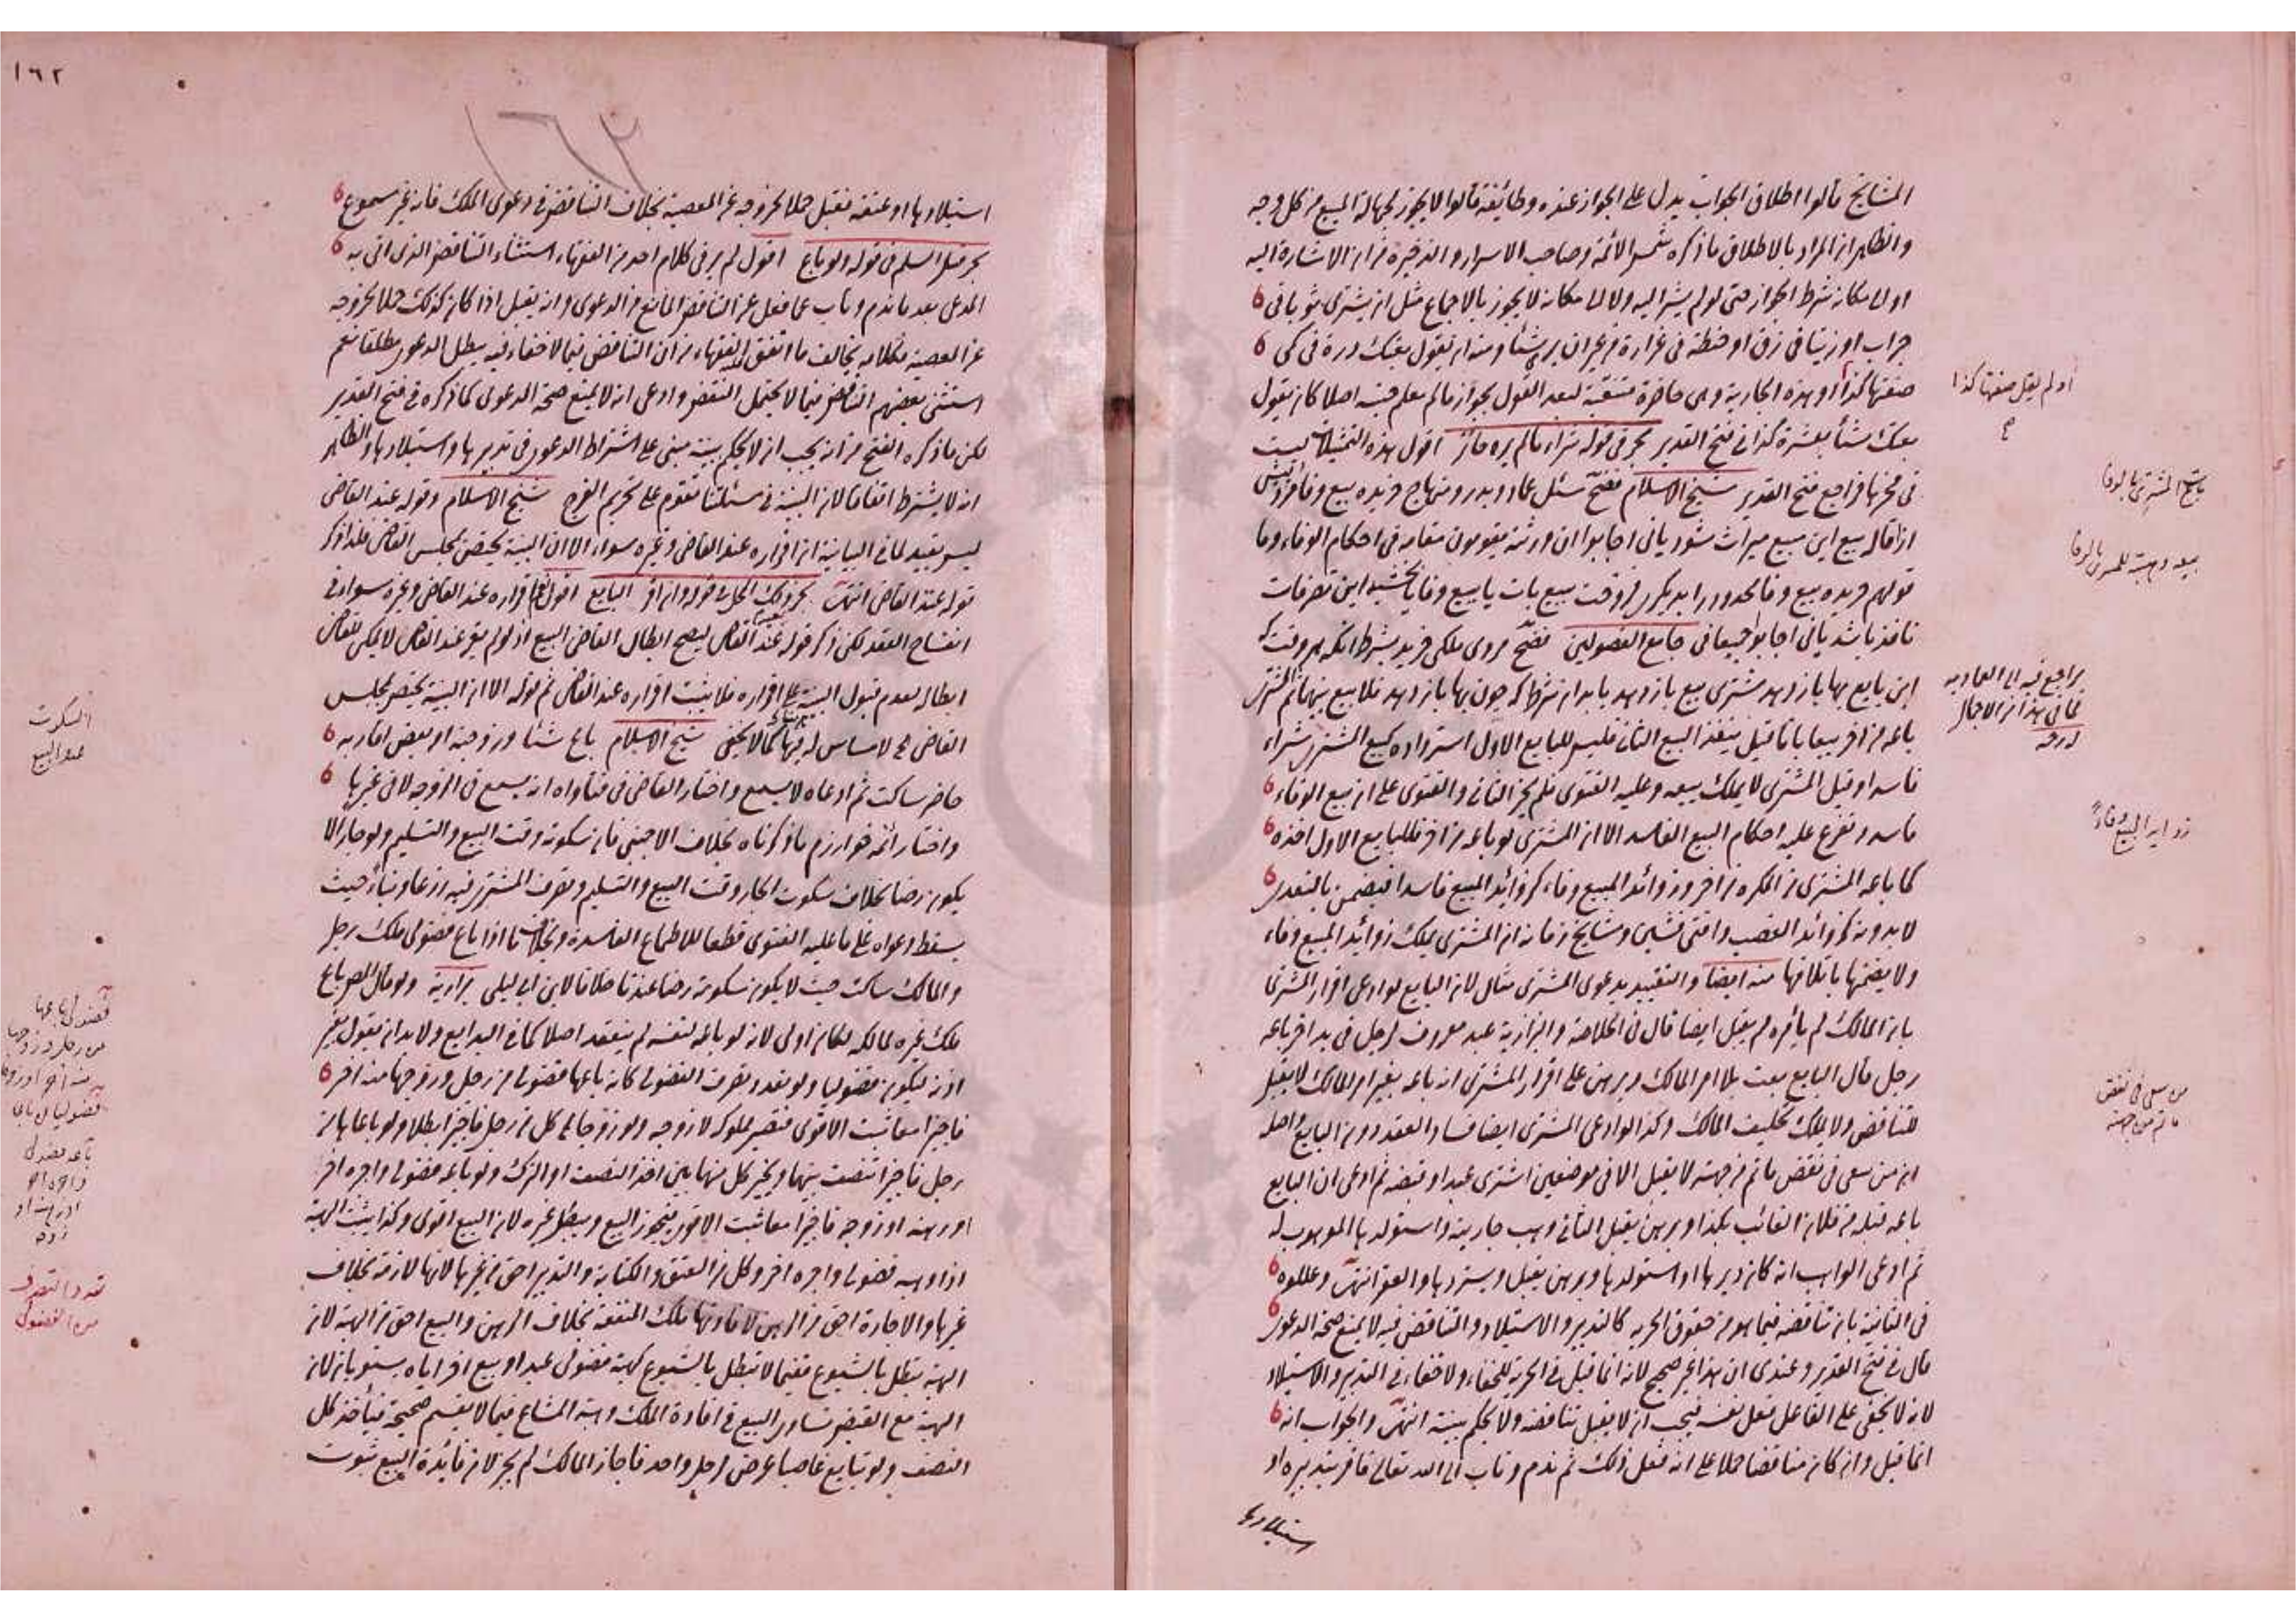 المشايخ قالوا اطلاق الجواب يدل على الجواز عنده وطائفة قالوا لا يجوز لجهالة المبيع من كل وجه
والظاهر ان المراد بالاطلاق ما ذكره شمس الائمة وصاحب الاسرار والذخيرة من ان الاشارة اليه
او الى مكانه شرط الجواز حتى لو لم يشر اليه ولا الى مكانه لا يجوز بالاجماع مثل ان يشترى ثوبا فى
جراب او زيتا فى زق او حنطة فى غرارة من غير ان يرى شيئا ومنه ان يقول بعتك درة فى كمى
صفتها كذا او هذه الجارية وهى حاضرة متنقبة لبعد القول بجواز مالم يعلم جنسه اصلا كان يقول
بعتك شيأ بعشرة كذا فى فتح القدير بحر فى قوله شراء مالم يره جائز اقول هذه التمثيلات ليست
فى محزها فراجع فتح القدير شيخ الاسلام
از اقاله بيع اين مبيع ميراث شود يانى اجابوا ان ورثته يقومون مقامه فى احكام الوفاء وما
قولهم خريده بيع وفا محدود را بديكرى فروخت ببيع بات يا ببيع وفا يا بخشيد اين تصرفات
نافذ باشد يانى اجابوا جميعا نى جامع الفصولين مردى ملكى خريد بشرط آنكه هر وقت كه
اين بايع بها باز دهد مشترى مبيع باز دهد بدان شرط كه چون بها باز دهد فلا بيع بينهما ثم المشترى
باعه من آخر بيعا باتا قيل ينفذ البيع الثانى فليس للبايع الاول استرداده كبيع المشترى شراء
فاسدا وقيل المشترى لا يملك بيعه وعليه الفتوى فلم يجز الثانى والفتوى على ان بيع الوفاء
فاسد وتفرع عليه احكام البيع الفاسد الا ان المشترى لو باعه من آخر فللبايع الاول اخذه
كما باعه المشترى من المكره من آخر وزوائد المبيع وفاء كزوائد المبيع فاسدا فيضمن بالتعدى
لا بدونه كزوائد الغصب وافتى ومشايخ زماننا ان المشترى يملك زوائد المبيع وفاء
ولا يضمنها باتلافها منه ايضا والتقييد بدعوى المشترى مثال لان البايع لو ادعى اقرار المشترى
بان المالك لم يأمره لم يقبل ايضا قال فى الخلاصة والبزازية عبد معروف لرجل فى يد آخر باعه
رجل قال البايع بعت بلا امر المالك وبرهن على اقرار المشترى انه باعه بغير امر المالك لا يقبل
للتناقض ولا يملك تحليف المالك وكذا لو ادعى المشترى ايضا فساد العقد دون البايع واصله
ان من سعى فى نقض ما تم من جهته لا يقبل الا فى موضعين اشترى عبدا وقبضه ثم ادعى ان البايع
باعه قبله من فلان الغائب بكذا وبرهن يقبل الثانى وهب جارية واستولدها الموهوب له
ثم ادعى الواهب انه كان دبرها او استولدها وبرهن يقبل ويستردها والعقر انتهى وعللوه
فى الثانية بان تناقضه فيما هو من حقوق الحرية كالتدبير والاستيلاد والتناقض فيه لا يمنع صحة الدعوى
قال فى فتح القدير وعندى ان هذا غير صحيح لانه انما قبل فى الحرية للخفاء ولا خفاء فى التدبير والاستيلاد
لانه لا يخفى على الفاعل فعل نفسه فيجب ان لا يقبل تناقضه ولا يحكم ببينته انتهى والجواب انه
انما قبل وان كان مناقضا حملا على انه فعل ذلك ثم ندم وتاب الى الله تعالى فاقر بتدبيره او
استيلادها
او لم يقل صفتها كذا
صح
زوايد المبيع وفاءً
من سعى فى نقض
ما تم من جهته
١٦٢
استيلادها او عتقه فقبل حملا لخروجه عن المعصية بخلاف التناقض فى دعوى الملك فانه غير مسموع
بحر قبيل السلم فى قوله ولو باع اقول لم ير فى كلام احد من الفقهاء استثناء التناقض الذى اتى به
المدعى بعد ما ندم وتاب عما فعل عن التناقض المانع من الدعوى وانه يقبل اذا كان كذلك حملا لخروجه
عن المعصية فكلامه يخالف ما اتفق الفقهاء من ان التناقض فيما لا خفاء فيه يبطل الدعوى مطلقا نعم
استثنى بعضهم التناقض فيما لا يحتمل النقض وادعى انه لا يمنع صحة الدعوى كما ذكره فى فتح القدير
لكن ما ذكره الفتح من انه يجب ان لا يحكم ببينته مبنى على اشتراط الدعوى فى تدبيرها واستيلادها والظاهر
انه لا يشترط اتفاقا لان البينة فى مسئلتنا تقوم على تحريم الفرج شيخ الاسلام وقوله عند القاضى
ليس بقيد لما فى البيانية ان اقراره عند القاضى وغيره سواء الا ان البينة تختص بمجلس القاضى فلذا ذكر
قوله عند القاضى انتهى بحر فى ذلك المحل فى قوله وان اقر البايع اقول نعم اقراره عند القاضى وغيره سواء فى
انفساخ العقد لكن ذكر قوله عند القاضى ليصح ابطال القاضى البيع اذ لو لم يقر عند القاضى لا يمكن للقاضى
ابطاله بعدم قبول البينة على اقراره فلا يثبت اقراره عند القاضى ثم قوله الا ان البينة تختص بمجلس
القاضى مما لا مساس له فيها كما لا يخفى شيخ الاسلام باع شيئا وزوجته او بعض اقاربه
حاضر ساكت ثم ادعاه لا يسمع واختار القاضى فى فتاواه انه يسمع فى الزوجة لا فى غيرها
واختار ائمة خوارزم ما ذكرناه بخلاف الاجنبى فان سكوته وقت البيع والتسليم ولو جارا لا
يكون رضا بخلاف سكوت الجار وقت البيع والتسليم وتصرف المشترى فيه زرعا وبناء حيث
يسقط دعواه على ما عليه الفتوى قطعا للاطماع الفاسدة وبخلاف ما اذا باع فضولى ملك رجل
والمالك ساكت حيث لا يكون سكوته رضا عندنا خلافا لابن ابى ليلى بزازية ولو قال المص باع
ملك غيره لمالكه لكان اولى لانه لو باعه لنفسه لم ينعقد اصلا كما فى البدايع ولا بد ان يقول بغير
اذنه ليكون فضوليا ولو تعدد تصرف الفضولى كان باعها فضولى من رجل وزوجها منه آخر
فاجيزا معا ثبت الاقوى فتصير مملوكة لا زوجة ولو زوجاها كل من رجل فاجيزا بطلا ولو باعاها من
رجل فاجيزا تنصفت بينهما ويخير كل منهما بين اخذ النصف او الترك ولو باعه فضولى واجره آخر
او رهنه او زوجه فاجيزا معا ثبت الاقوى فيجوز البيع ويبطل غيره لان البيع اقوى وكذا يثبت الهبة
اذا وهبه فضولى واجره آخر وكل من العتق والكتابة والتدبير احق من غيرها لانها لازمة بخلاف
غيرها والاجارة احق من الرهن لافادتها ملك المنفعة بخلاف الرهن والبيع احق من الهبة لان
الهبة تبطل بالشيوع ففيما لا تبطل بالشيوع كهبة فضولى عبدا وبيع آخر اياه يستويان لان
الهبة مع القبض تساوى البيع فى افادة الملك وهبة المشاع فيما لا يقسم صحيحة فيأخذ كل
النصف ولو تبايع غاصبا عرضى رجل واحد فاجاز المالك لم يجز لان فائدة البيع ثبوت
السكوت
عند البيع
فضولى باعها
من رجل وزوجها
منه آخر
باعه فضولى
واجره آخر
تعدد التصرف
من الفضولى